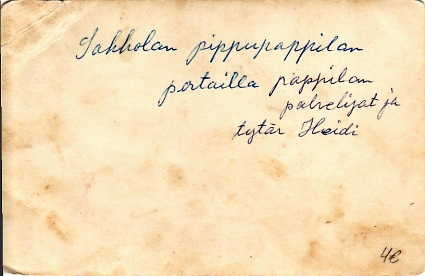 Sakkolan pippupappilan
portailla pappilan
palvelijat ja
tytär Heidi
4€